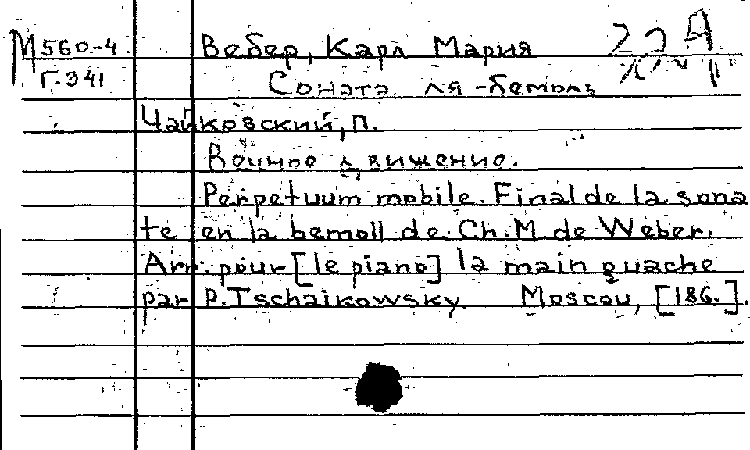 М560-4
Г.341
Вебер, Карл Мария
Соната ля-бемоль
Чайковский, П.
Вечное движение.
Perpetuum mobile. Final de la sona
te en la bemoll de Ch. M. de Weber.
Arr. pour [le piano] la main guache
par P. Tschaikowsky. Moscou, [186.].